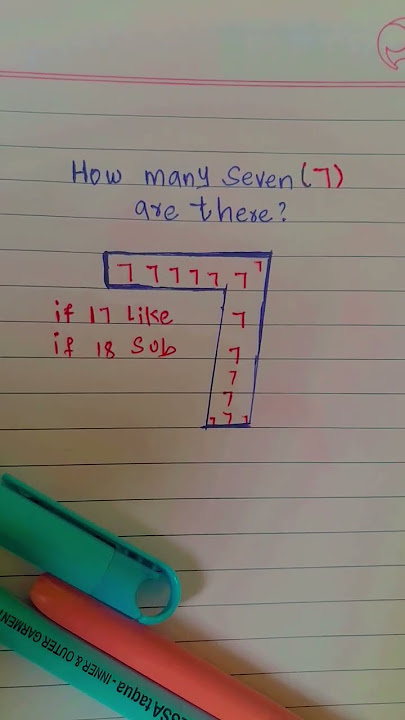 How many seven (7)
are there?
7 7 7 7 7 , 7 7
if 17 Like
7
if 18 Sub
7
7
7
7 7 7
INNER & OUTER GARMENT
SSA taqua